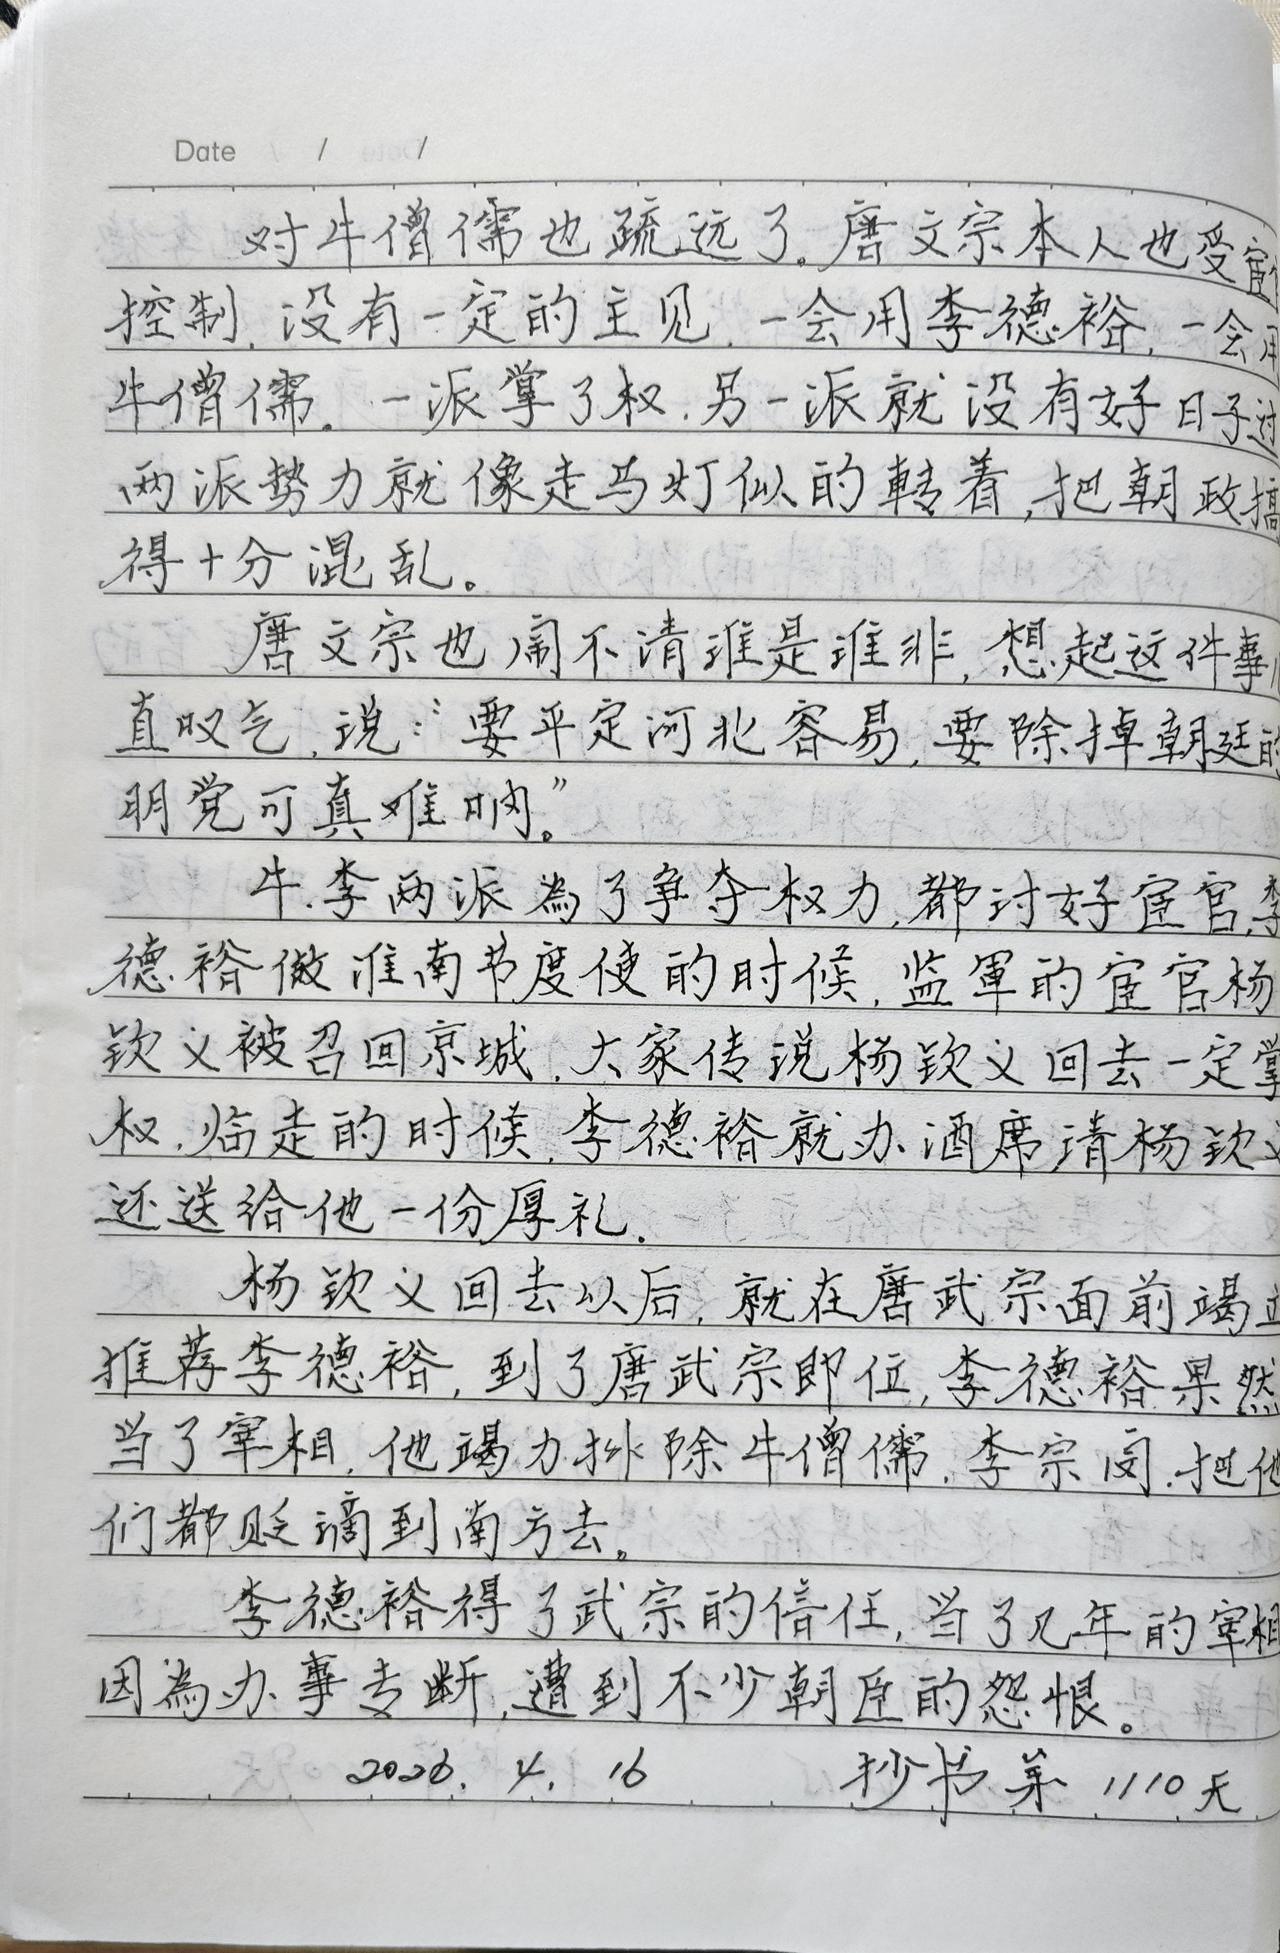 Date / /
对牛僧儒也疏远了。唐文宗本人也受宦
控制,没有一定的主见,一会用李德裕,一会用
牛僧儒。一派掌了权,另一派就没有好日子过
两派势力就像走马灯似的轉着,把朝政搞
得十分混乱。
唐文宗也闹不清谁是谁非,想起这件事
直叹气,说:“要平定河北容易,要除掉朝廷的
朋党可真难呐。”
牛.李两派為了争夺权力,都讨好宦官,李
德裕做淮南节度使的时候,监軍的宦官杨
钦义被召回京城,大家传说杨钦义回去一定掌
权,临走的时候,李德裕就办酒席请杨钦义
还送给他一份厚礼.
杨钦义回去以后,就在唐武宗面前竭力
推荐李德裕,到了唐武宗即位,李德裕果然
当了宰相,他竭力排除牛僧儒,李宗闵,把他
们都贬谪到南方去。
李德裕得了武宗的信任,当了几年的宰相
因為办事专断,遭到不少朝臣的怨恨。
2026.4.16 抄书第1110天